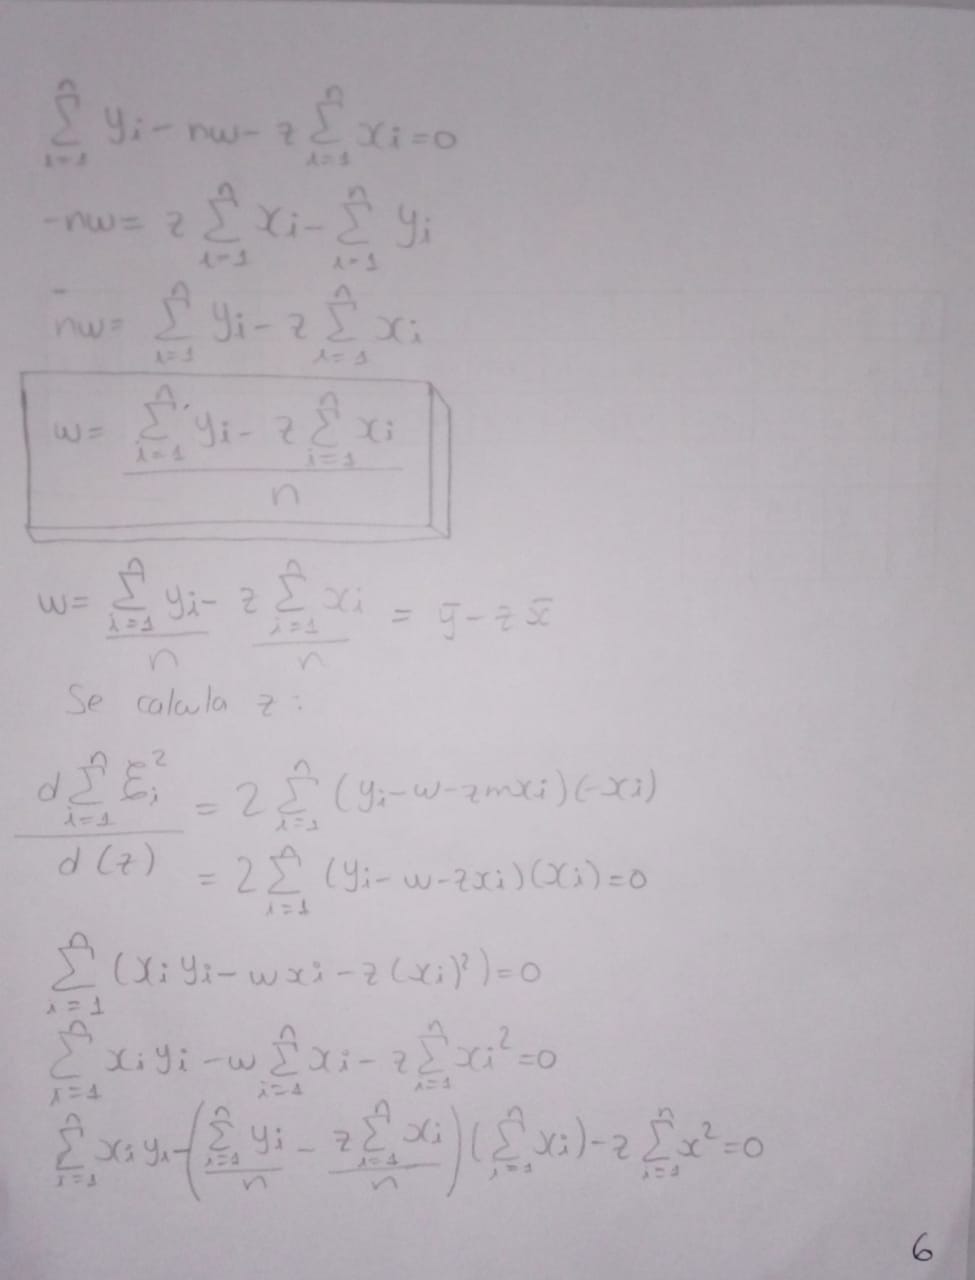 ∑ᵢ₌₁ⁿ yᵢ - nw - z ∑ᵢ₌₁ⁿ xᵢ = 0
-nw = z ∑ᵢ₌₁ⁿ xᵢ - ∑ᵢ₌₁ⁿ yᵢ
nw = ∑ᵢ₌₁ⁿ yᵢ - z ∑ᵢ₌₁ⁿ xᵢ
w = (∑ᵢ₌₁ⁿ yᵢ - z ∑ᵢ₌₁ⁿ xᵢ) / n
w = (∑ᵢ₌₁ⁿ yᵢ) / n - (z ∑ᵢ₌₁ⁿ xᵢ) / n = ȳ - z x̄
Se calcula z:
d ∑ᵢ₌₁ⁿ ξᵢ² / d(z) = 2 ∑ᵢ₌₁ⁿ (yᵢ - w - zmxᵢ)(-xᵢ)
= 2 ∑ᵢ₌₁ⁿ (yᵢ - w - zxᵢ)(xᵢ) = 0
∑ᵢ₌₁ⁿ (xᵢ yᵢ - w xᵢ - z(xᵢ)²) = 0
∑ᵢ₌₁ⁿ xᵢ yᵢ - w ∑ᵢ₌₁ⁿ xᵢ - z ∑ᵢ₌₁ⁿ xᵢ² = 0
∑ᵢ₌₁ⁿ xᵢ yᵢ - ((∑ᵢ₌₁ⁿ yᵢ) / n - (z ∑ᵢ₌₁ⁿ xᵢ) / n)(∑ᵢ₌₁ⁿ xᵢ) - z ∑ᵢ₌₁ⁿ x² = 0
6